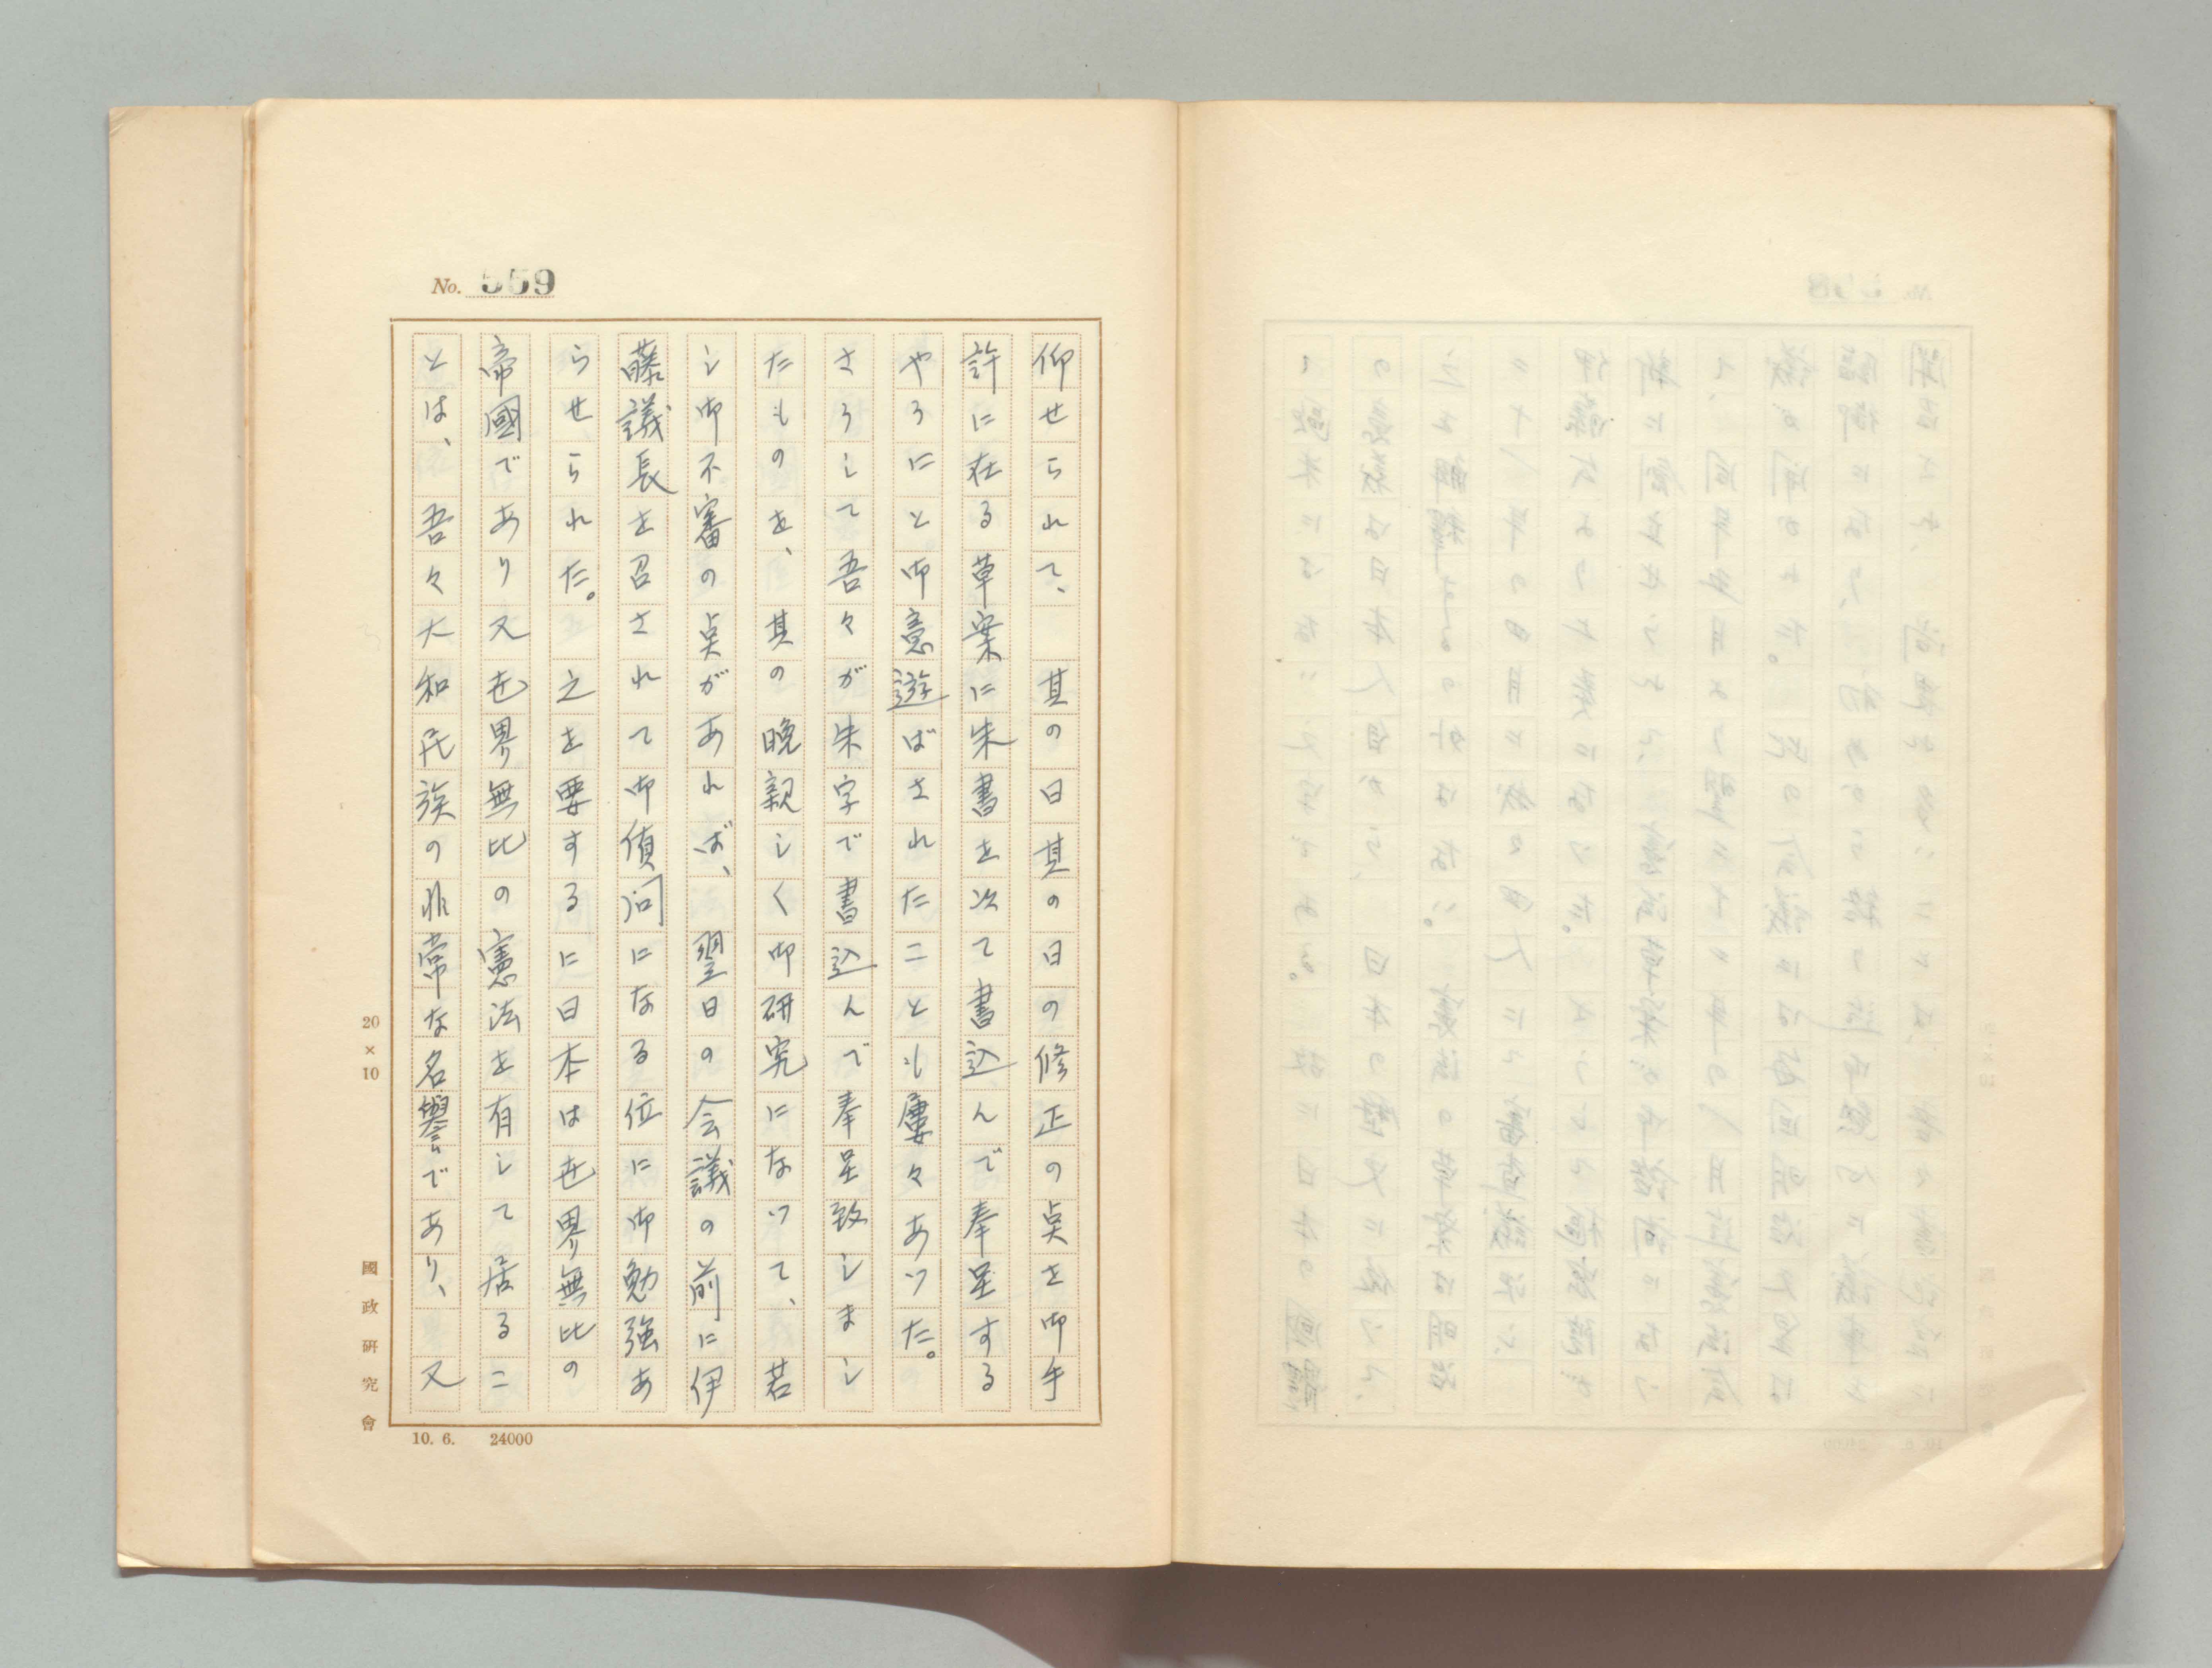 No. 559
仰せられて、 其の日其の日の修正の点を御手
許に在る草案に朱書を次て書込んで奉呈する
やうにと御意遊ばされたことも屢々あつた。
さうして吾々が朱字で書込んで奉呈致しまし
たものを、 其の晩親しく御研究になつて、若
し御不審の点があれば、 翌日の会議の前に伊
藤議長を召されて御偵問になる位に御勉強あ
らせられた。 之を要するに日本は世界無比の
帝國であり又世界無比の憲法を有して居るこ
とは、吾々大和民族の非常な名譽であり、 又
20×10
國政研究會
10. 6. 24000